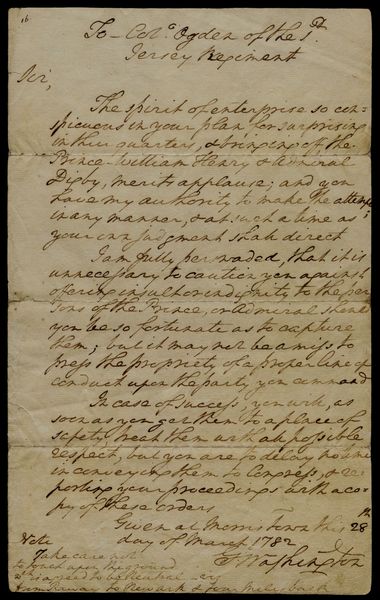 16
To - Colo. Ogden of the 1st
Jersey Regiment
Sir,
The spirit of enterprise so con-
spicuous in your plan for surprising
in their quarters, & bringing off the
Prince-William Henry & Admiral
Digby, merits applause; and you
have my authority to make the attempt
in any manner, & at such a time as
your own judgment shall direct
I am fully persuaded, that it is
unnecessary to caution you against
offering insult or indignity to the per-
sons of the Prince, or Admiral should
you be so fortunate as to capture
them; but it may not be amiss to
press the propriety of a proper line of
conduct upon the party you command
In case of success, you will, as
soon as you get them to a place of
safety, treat them with all possible
respect, but you are to delay no time
in conveying them to Congress, & re-
porting your proceedings with a co-
py of these orders
Given at Morris Town this 28th
day of March 1782
Go Washington
Note
Take care not
to touch upon the ground
wch is agreed to be Neutral -
from Raway to Newark & four miles back